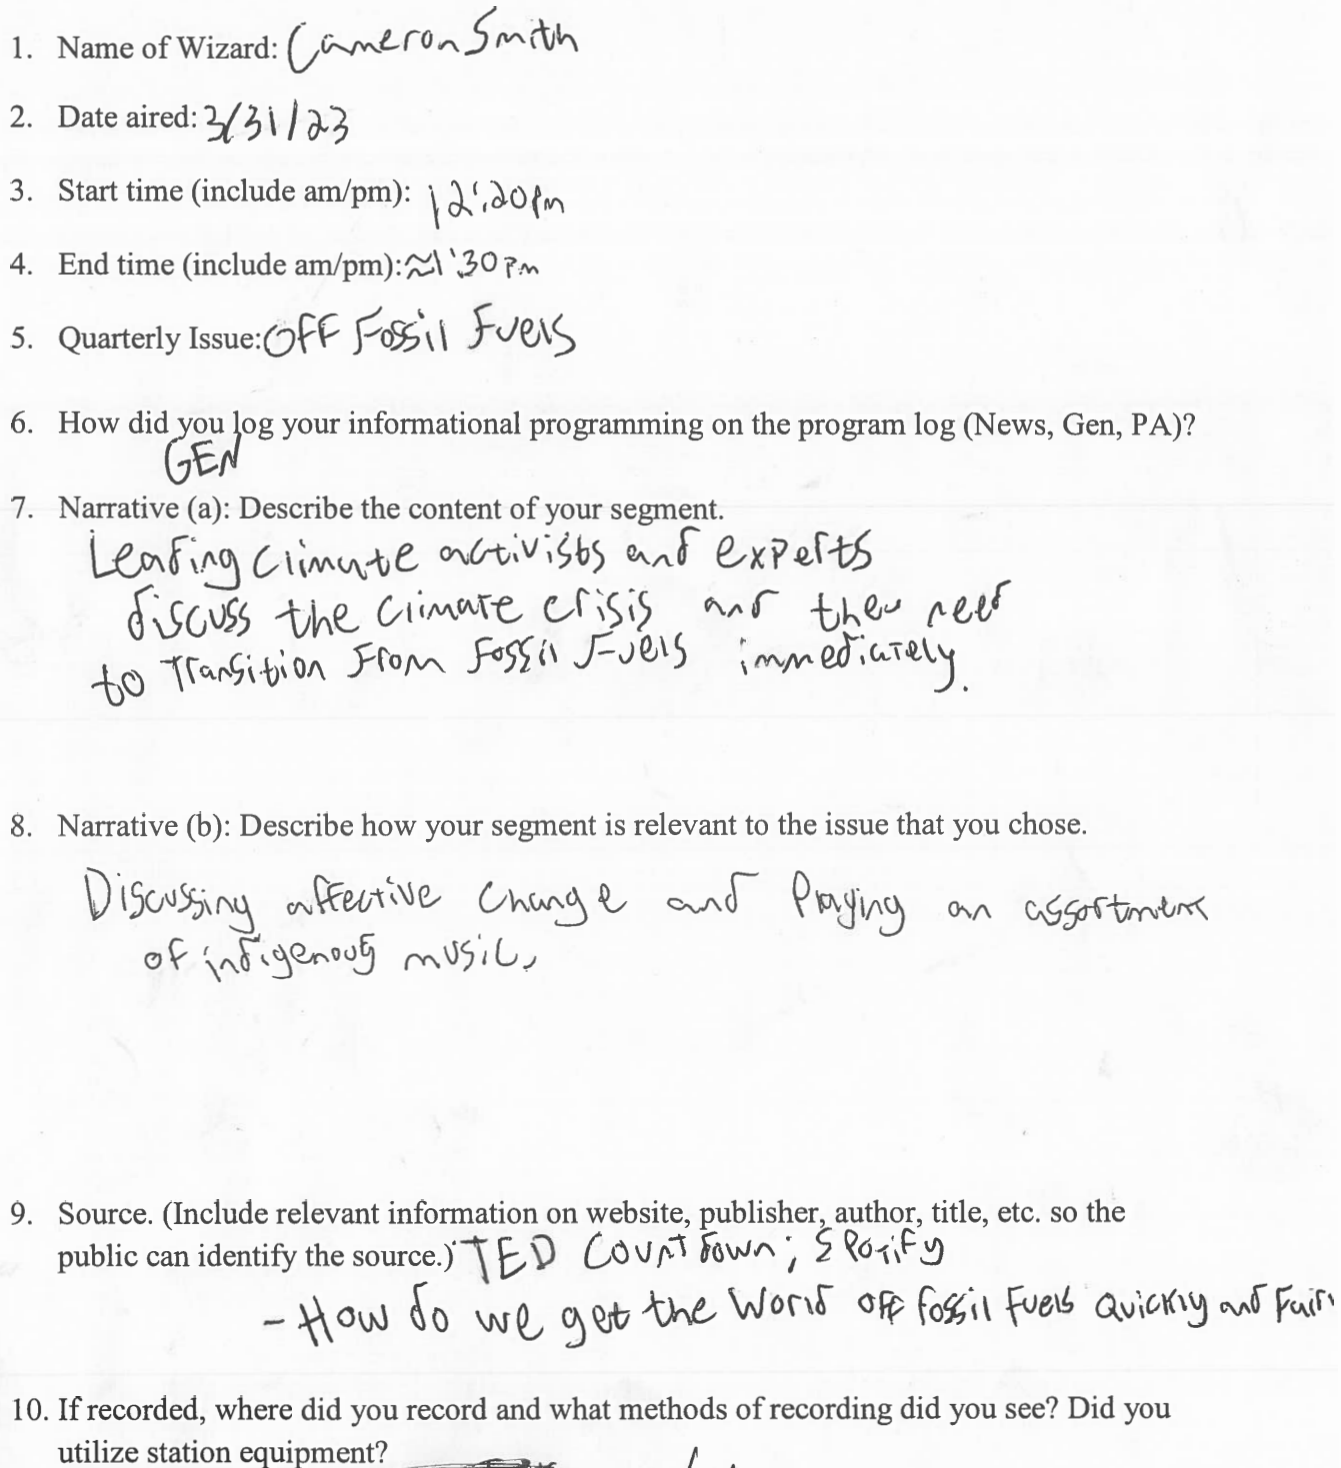 1. Name of Wizard: Cameron Smith
2. Date aired: 3/31/23
3. Start time (include am/pm): 12:20pm
4. End time (include am/pm): ≈1:30pm
5. Quarterly Issue: Off Fossil Fuels
6. How did you log your informational programming on the program log (News, Gen, PA)?
GEN
7. Narrative (a): Describe the content of your segment.
Leading climate activists and experts
discuss the climate crisis and the need
to transition from fossil fuels immediately.
8. Narrative (b): Describe how your segment is relevant to the issue that you chose.
Discussing affective change and playing an assortment
of indigenous music.
9. Source. (Include relevant information on website, publisher, author, title, etc. so the
public can identify the source.) TED Countdown; Spotify
- How do we get the world off fossil fuels quickly and fair
10. If recorded, where did you record and what methods of recording did you see? Did you
utilize station equipment?